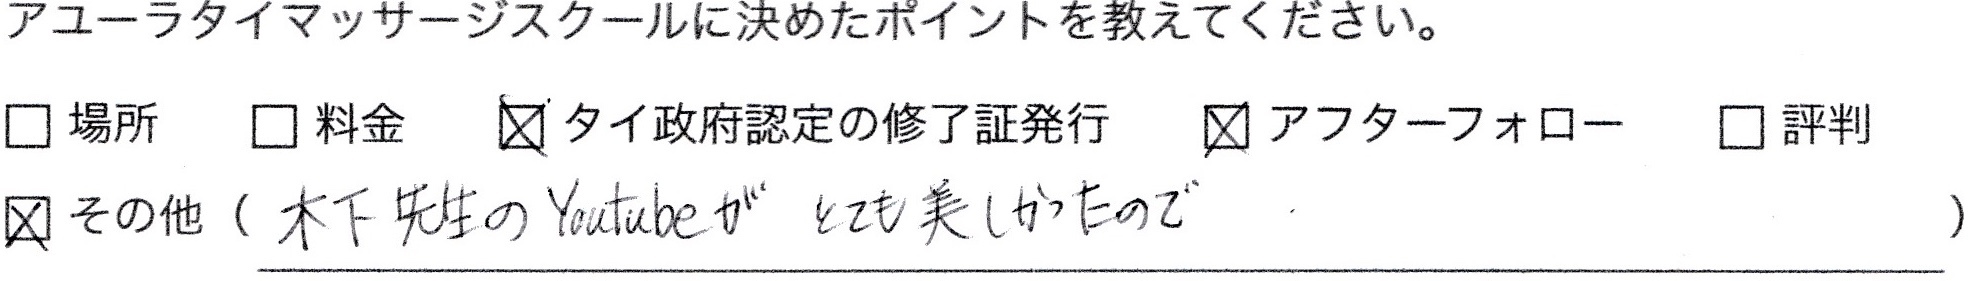 アユーラタイマッサージスクールに決めたポイントを教えてください。
□ 場所 □ 料金 ☒ タイ政府認定の修了証発行 ☒ アフターフォロー □ 評判
☒ その他 ( 木下先生のYoutubeが とても美しかったので )